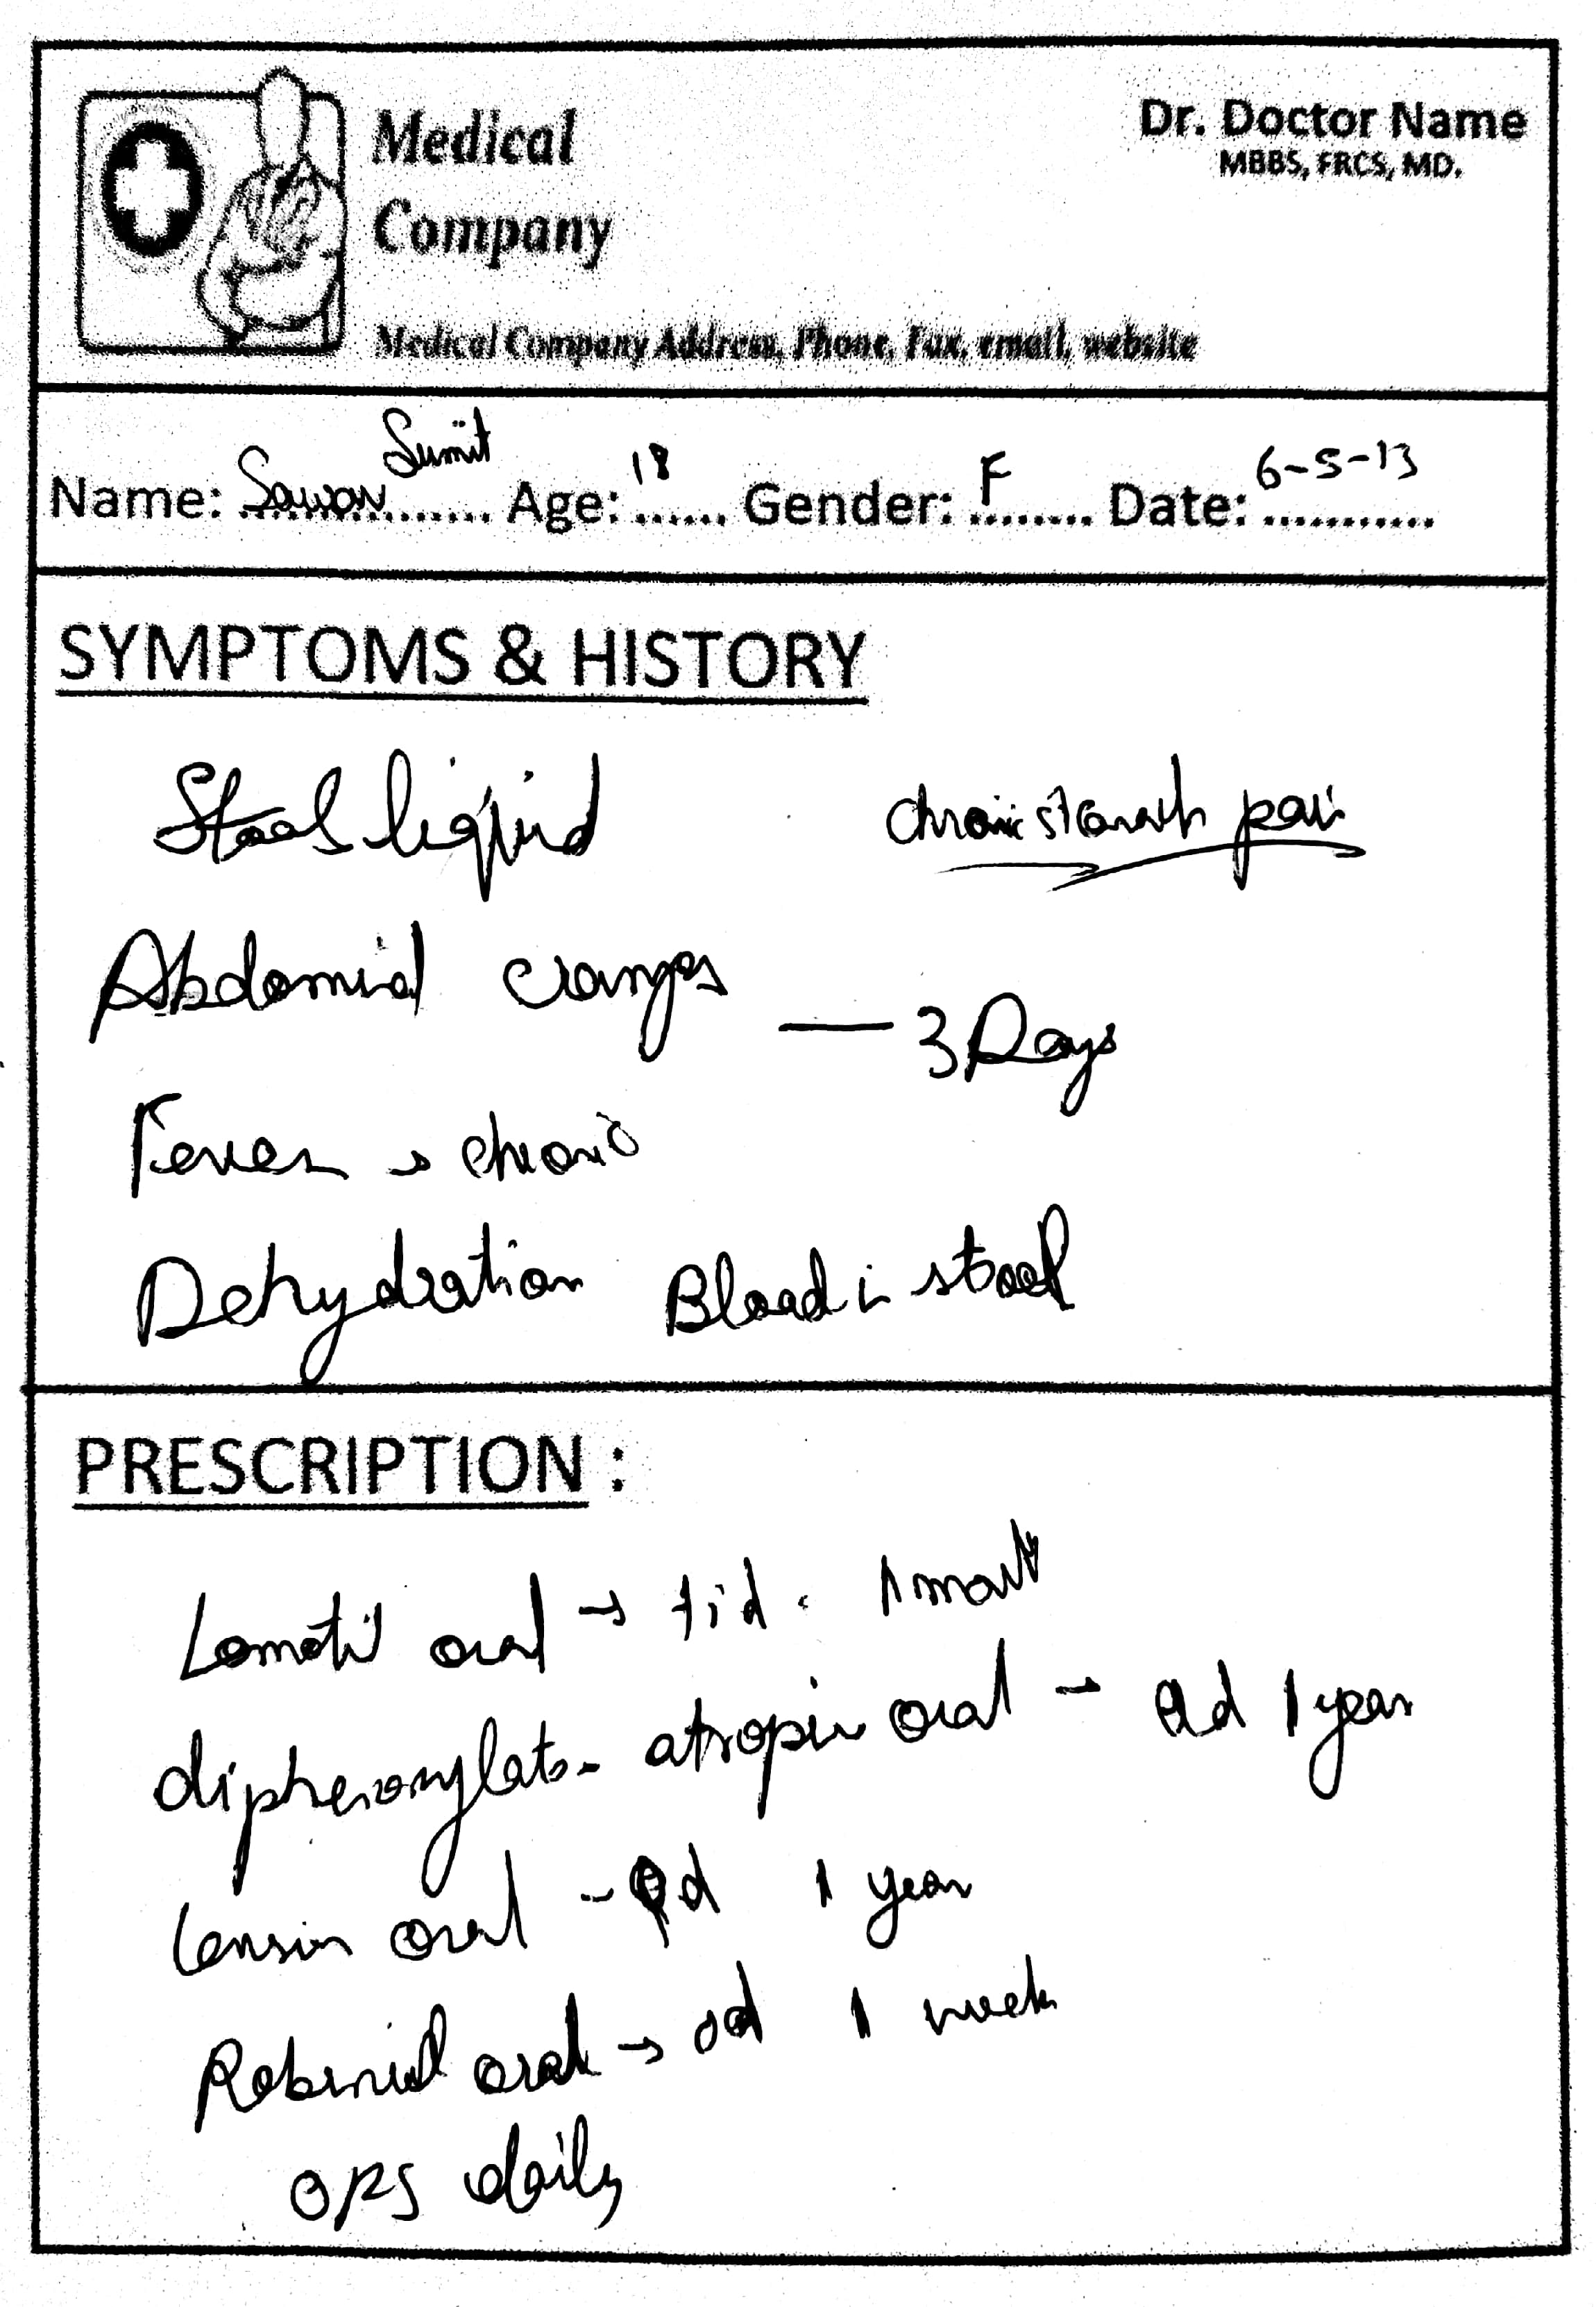 Medical
Company
Dr. Doctor Name
MBBS, FRCS, MD.
Medical Company Address, Phone, Fax, email, website
Name: Sawan Sumit Age: 18 Gender: F Date: 6-5-13
SYMPTOMS & HISTORY
Stool liquid chronic stomach pain
Abdominal cramps
— 3 Days
Fever → chronic
Dehydration Blood in stool
PRESCRIPTION :
Lomotil oral → tid. 1 month
diphenoxylate - atropin oral - Qd 1 year
Levsin oral - Qd 1 year
Robinul oral → od 1 week
ORS daily